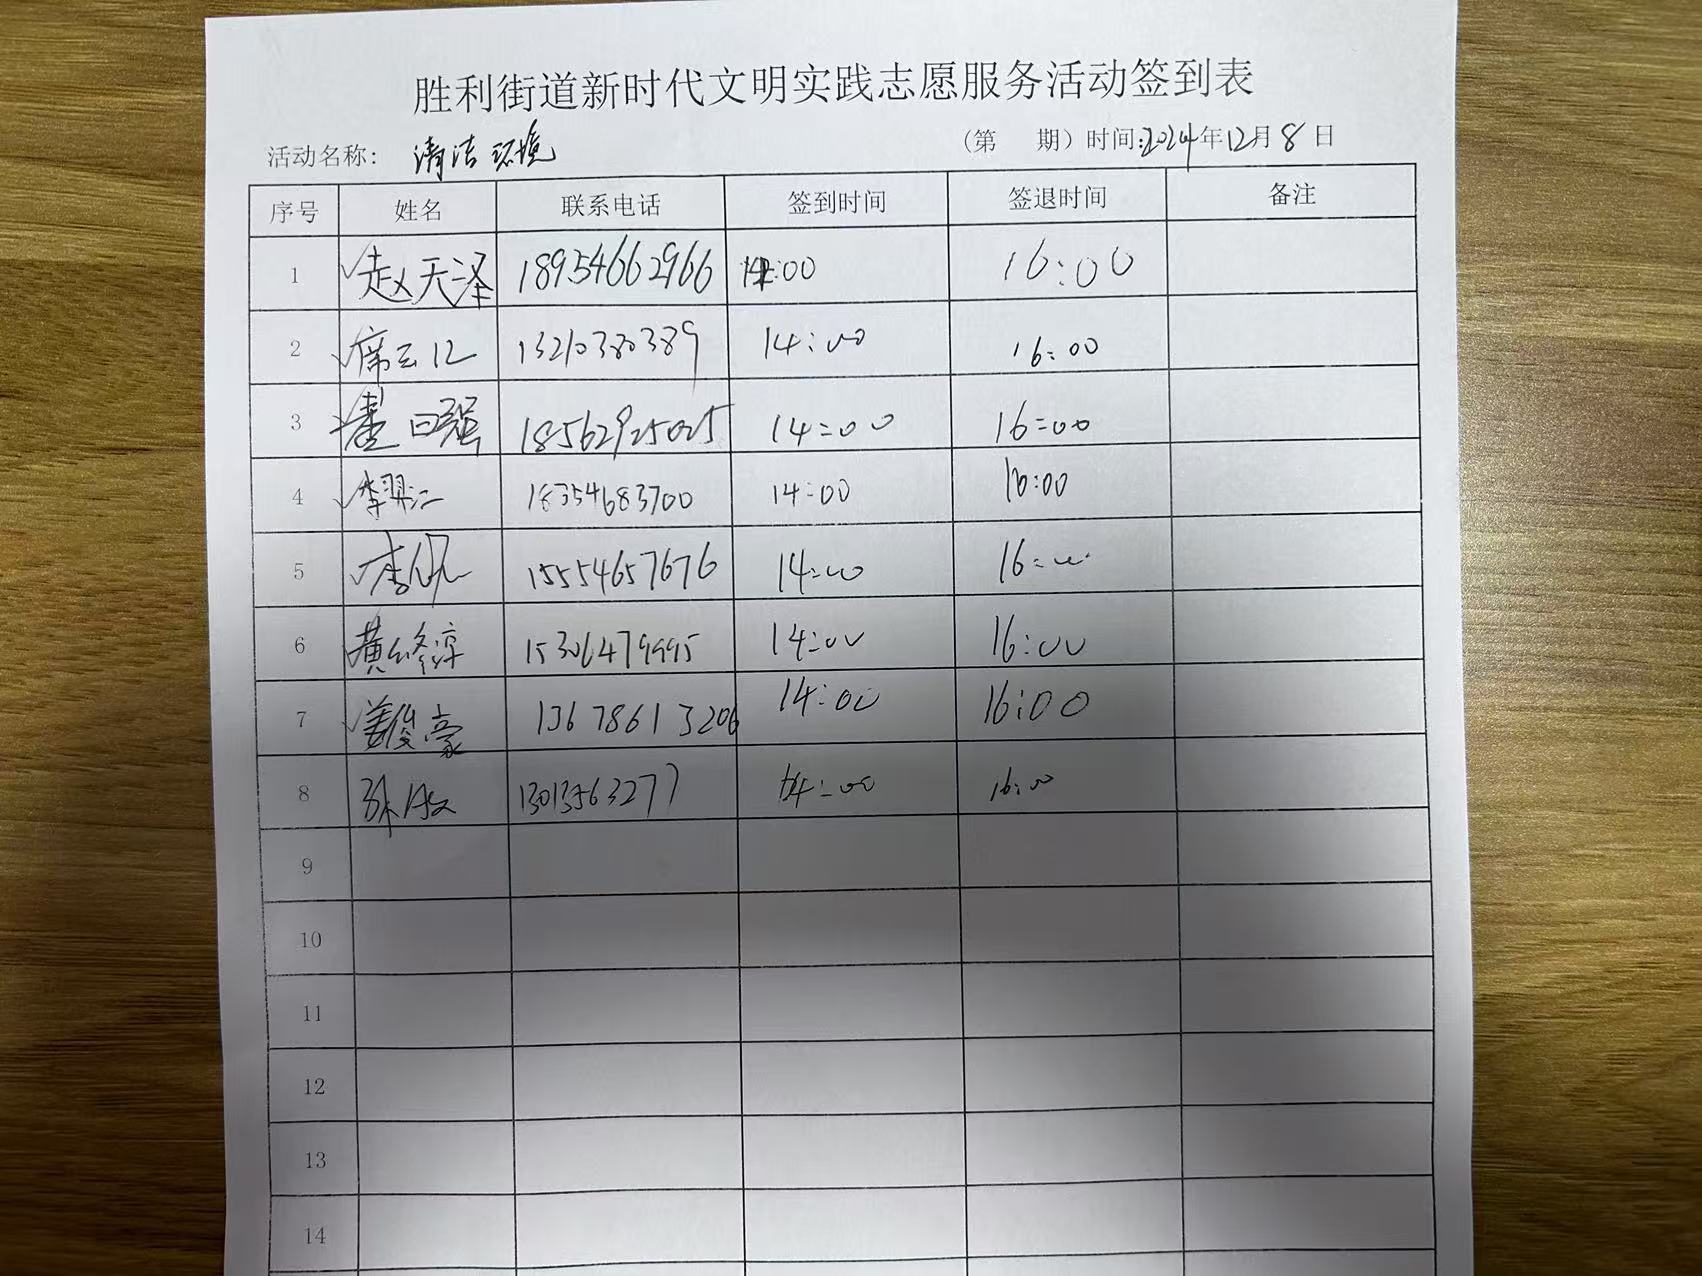 胜利街道新时代文明实践志愿服务活动签到表
活动名称: 清洁环境 (第 期) 时间:2024年12月8日
序号 姓名 联系电话 签到时间 签退时间 备注
1 赵天泽 18954662966 14:00 16:00
2 席云江 13210380389 14:00 16:00
3 18562925025 14:00 16:00
4 李翠江 18354683700 14:00 16:00
5 15554657676 14:00 16:00
6 15306479995 14:00 16:00
7 姜俊豪 13678613206 14:00 16:00
8 13013563277 14:00 16:00
9
10
11
12
13
14